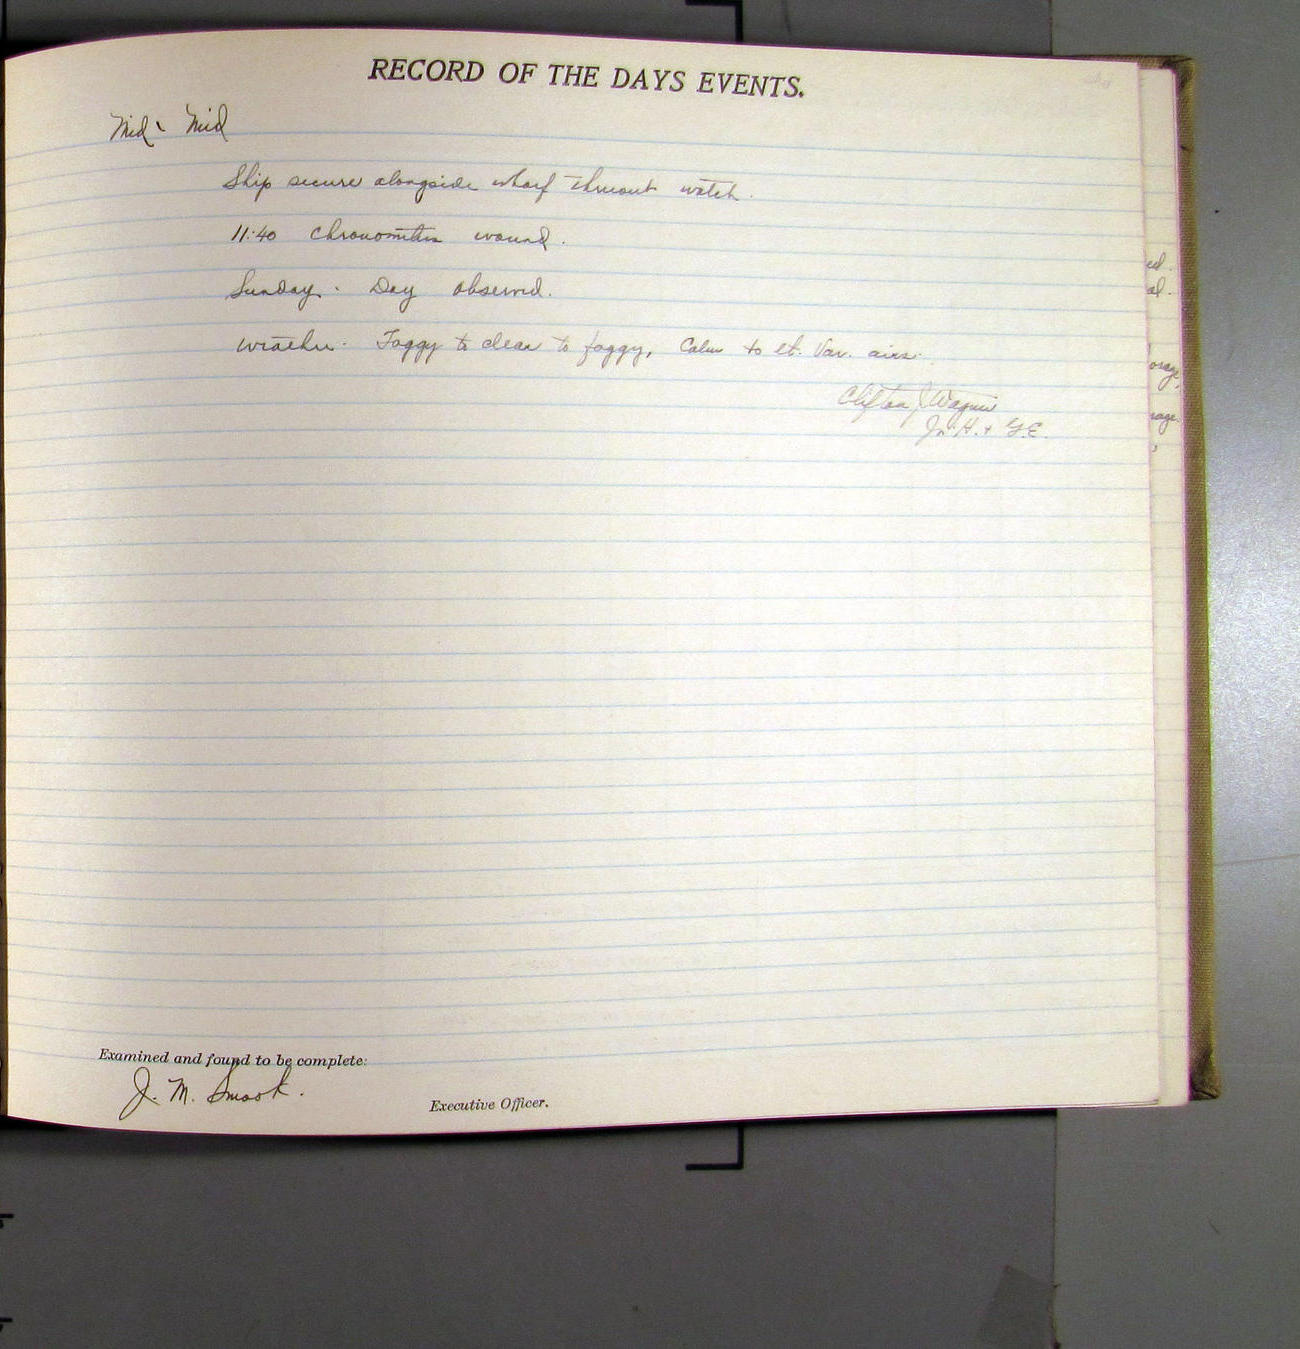 RECORD OF THE DAYS EVENTS.
Mid - Mid
Ship secure alongside wharf thruout watch.
11:40 Chronometers wound.
Sunday. Day observed.
Weather. Foggy to clear to foggy, Calm to lt. Var. airs.
Clifton J. Wagner
Jr. H. & G.E.
ed.
al.
orage,
rage.
Examined and found to be complete:
J. M. Smook.
Executive Officer.